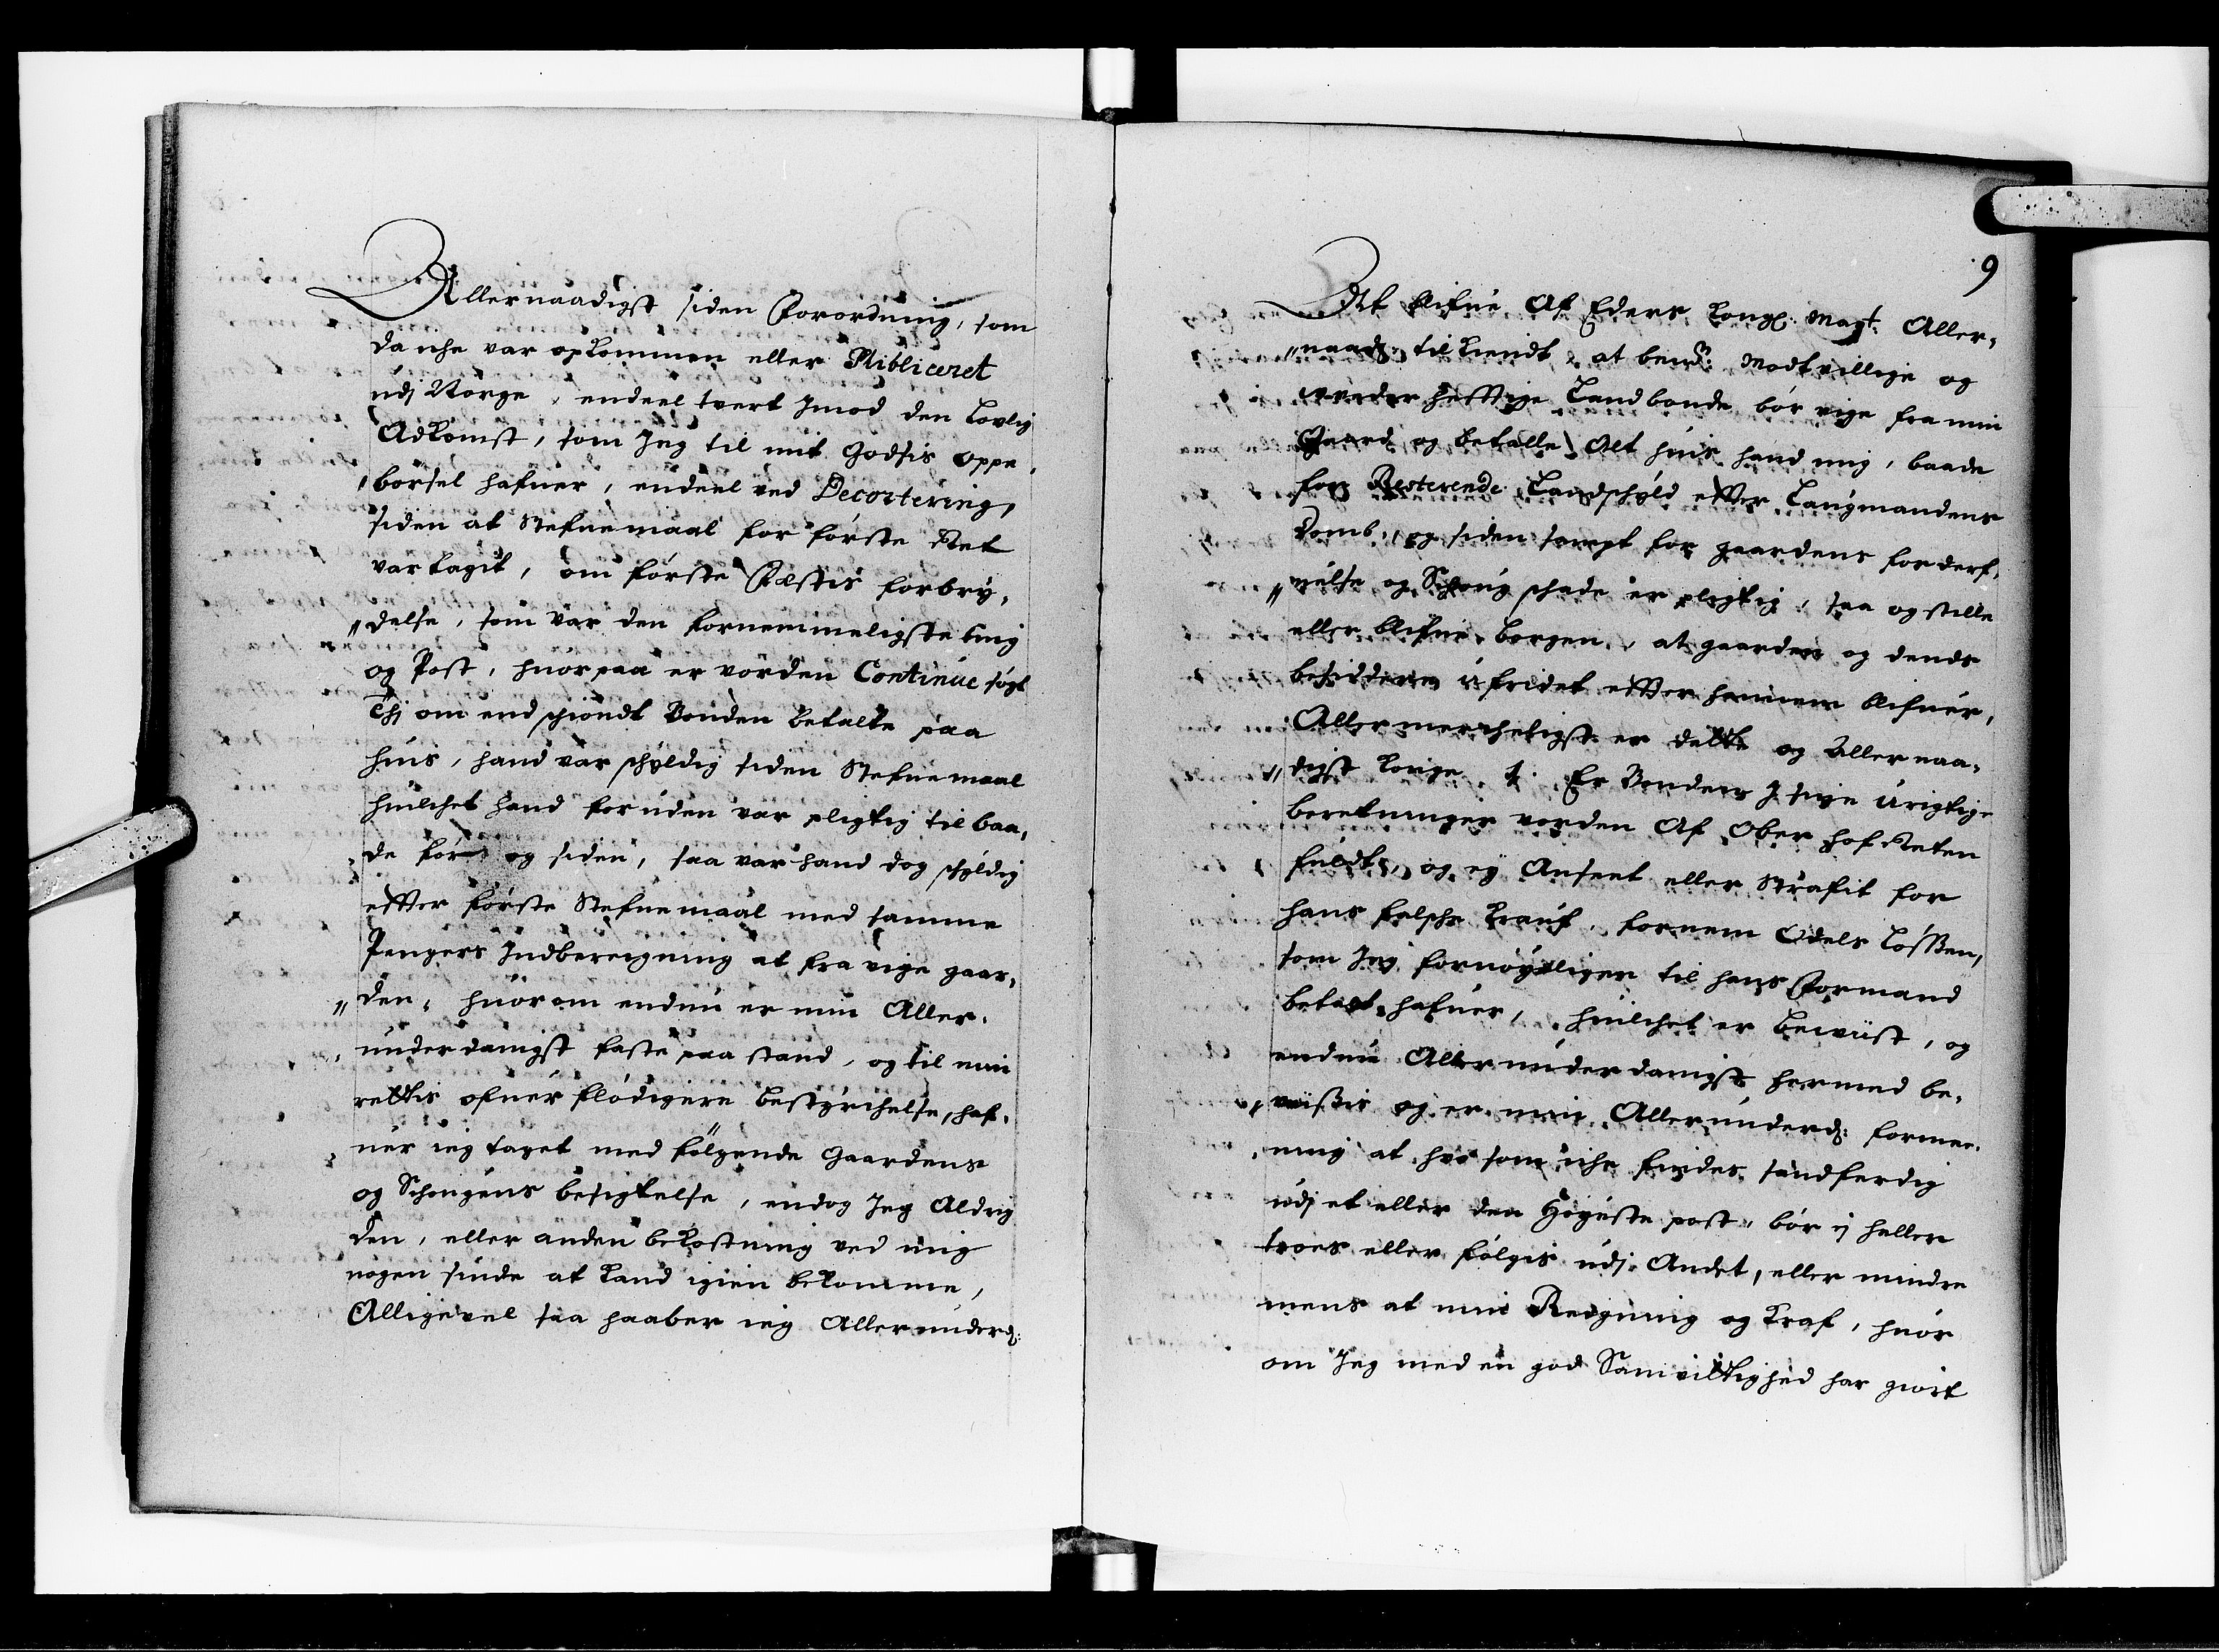 Allernaadigst siden Forordning, som
da iche var opkommen eller Publiceret
udj Norge, endeel tvert Imod den Lovlig
Adkomst, som Jeg til mit Godsis oppe,
børsel hafuer, endeel ved Decortering,
siden at Stefnemaal for første Ret
var tagit, om første Fæstis forbry,
"delse, som var den fornemmeligste ting
og Post, huorpaa er vorden Continue søgt
Thj om end schiøndt Bonden betalte paa
huis, hand var schyldig siden Stefnemaal
huilchet hand foruden var pligtig til baa,
de før og siden, saa var hand dog schyldig
effter første Stefnemaal med samme
Pengers Indberegning at fra vige gaar,
"den, huorom endnu er min Aller,
underdanigst faste paastand, og til min
rettis ofuerflødigere bestyrchelse, haf,
uer ieg taget med følgende Gaardens
og Schougens besigtelse, endog Jeg Aldrig
den, eller anden bekostning ved mig
nogen sinde at kand igien bekomme,
Alligevel saa haaber ieg Allerunderd:
9
At blifue Af Eders Kongl: Mayt. Aller,
"naad: tilkiendt, at bemte. Modtvillige og
wvederhefftige Landbonde bør vige fra min
Gaard og betalle Alt huis hand mig, baade
for Resterende Landschyld effter Laugmandens
Domb, og siden sampt for gaardens forderf,
"velse og Schoug schade er pligtig, saa og stille
eller blifue borgen, at gaarden og dends
besiddere ufridet effter hannem blifuer,
Allermercheligst er dette og Allernaa,
"digst Konge, t. Er Bonden J sine urigtige
beretninger vorden Af Ober hof Reten
fuldt, og ey Anseet eller Strafit for
hans falsche krauf, fornem Odels Løssen,
som Jeg fornøyeligen til hans Formand
betalt hafuer, huilchet er bewiist, og
endnu Allerunderdanigst hermed be,
"wiißis og er min Allerunderd: formee,
ning at huo som iche findes sandferdig
udj et eller den Høyeste post, bør ej heller
troes eller følges udj Andet, eller mindre
mens at min Regning og kraf, huor
om Jeg med en god Samvittighed har giort